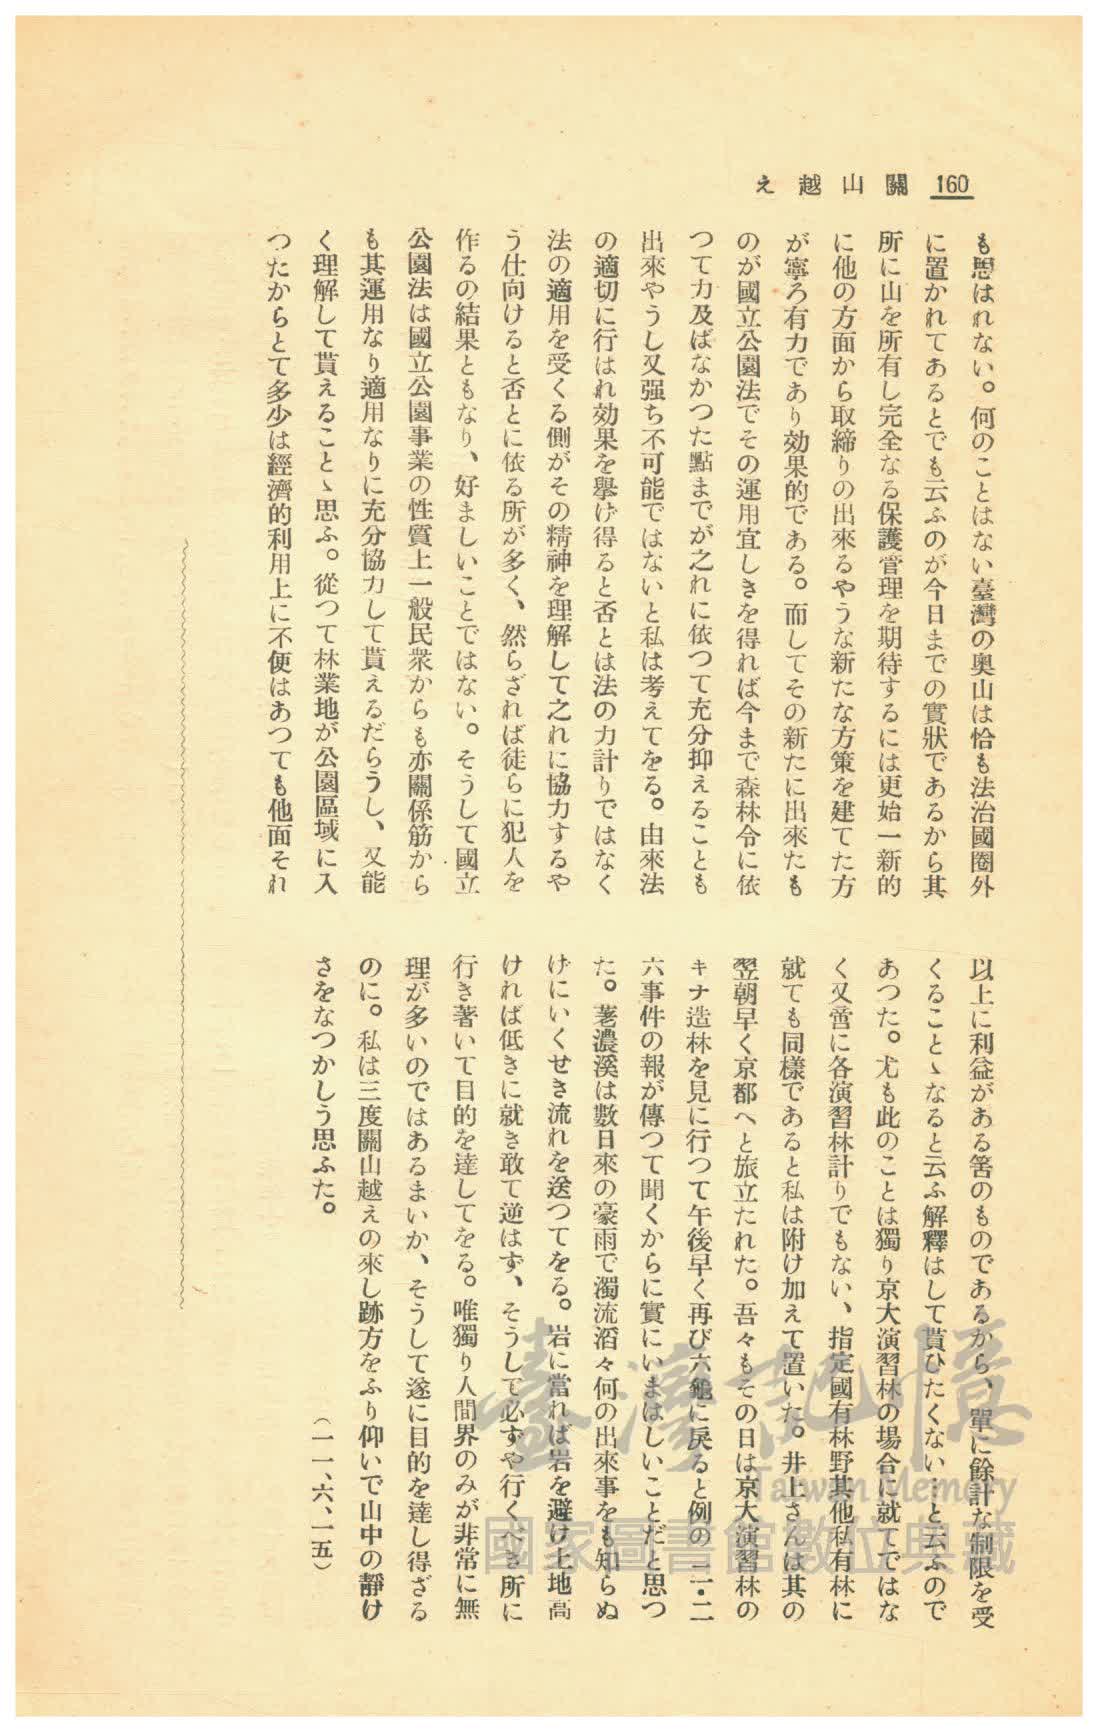 160 關山越え
も思はれない。何のことはない臺灣の奥山は恰も法治國圈外
に置かれてあるとでも云ふのが今日までの實狀であるから其
所に山を所有し完全なる保護管理を期待するには更始一新的
に他の方面から取締りの出來るやうな新たな方策を建てた方
が寧ろ有力であり効果的である。而してその新たに出來たも
のが國立公園法でその運用宜しきを得れば今まで森林令に依
つて力及ばなかつた點までが之れに依つて充分抑えることも
出來やうし又强ち不可能ではないと私は考えてをる。由來法
の適切に行はれ効果を擧げ得ると否とは法の力計りではなく
法の適用を受くる側がその精神を理解して之れに協力するや
う仕向けると否とに依る所が多く、然らざれば徒らに犯人を
作るの結果ともなり、好ましいことではない。そうして國立
公園法は國立公園事業の性質上一般民衆からも亦關係筋から
も其運用なり適用なりに充分協力して貰えるだらうし、又能
く理解して貰えることゝ思ふ。從つて林業地が公園區域に入
つたからとて多少は經濟的利用上に不便はあつても他面それ
以上に利益がある筈のものであるから、單に餘計な制限を受
くることゝなると云ふ解釋はして貰ひたくない…と云ふので
あつた。尤も此のことは獨り京大演習林の場合に就てではな
く又啻に各演習林計りでもない、指定國有林野其他私有林に
就ても同樣であると私は附け加えて置いた。井上さんは其の
翌朝早く京都へと旅立たれた。吾々もその日は京大演習林の
キナ造林を見に行つて午後早く再び六龜に戻ると例の二・二
六事件の報が傳つて聞くからに實にいまはしいことだと思つ
た。荖濃溪は數日來の豪雨で濁流滔々何の出來事をも知らぬ
げにいくせき流れを送つてをる。岩に當れば岩を避け土地高
ければ低きに就き敢て逆はず、そうして必ずや行くべき所に
行き著いて目的を達してをる。唯獨り人間界のみが非常に無
理が多いのではあるまいか、そうして遂に目的を達し得ざる
のに。私は三度關山越えの來し跡方をふり仰いで山中の靜け
さをなつかしう思ふた。
（一一、六、一五）
臺灣記憶
Taiwan Memory
國家圖書館數位典藏